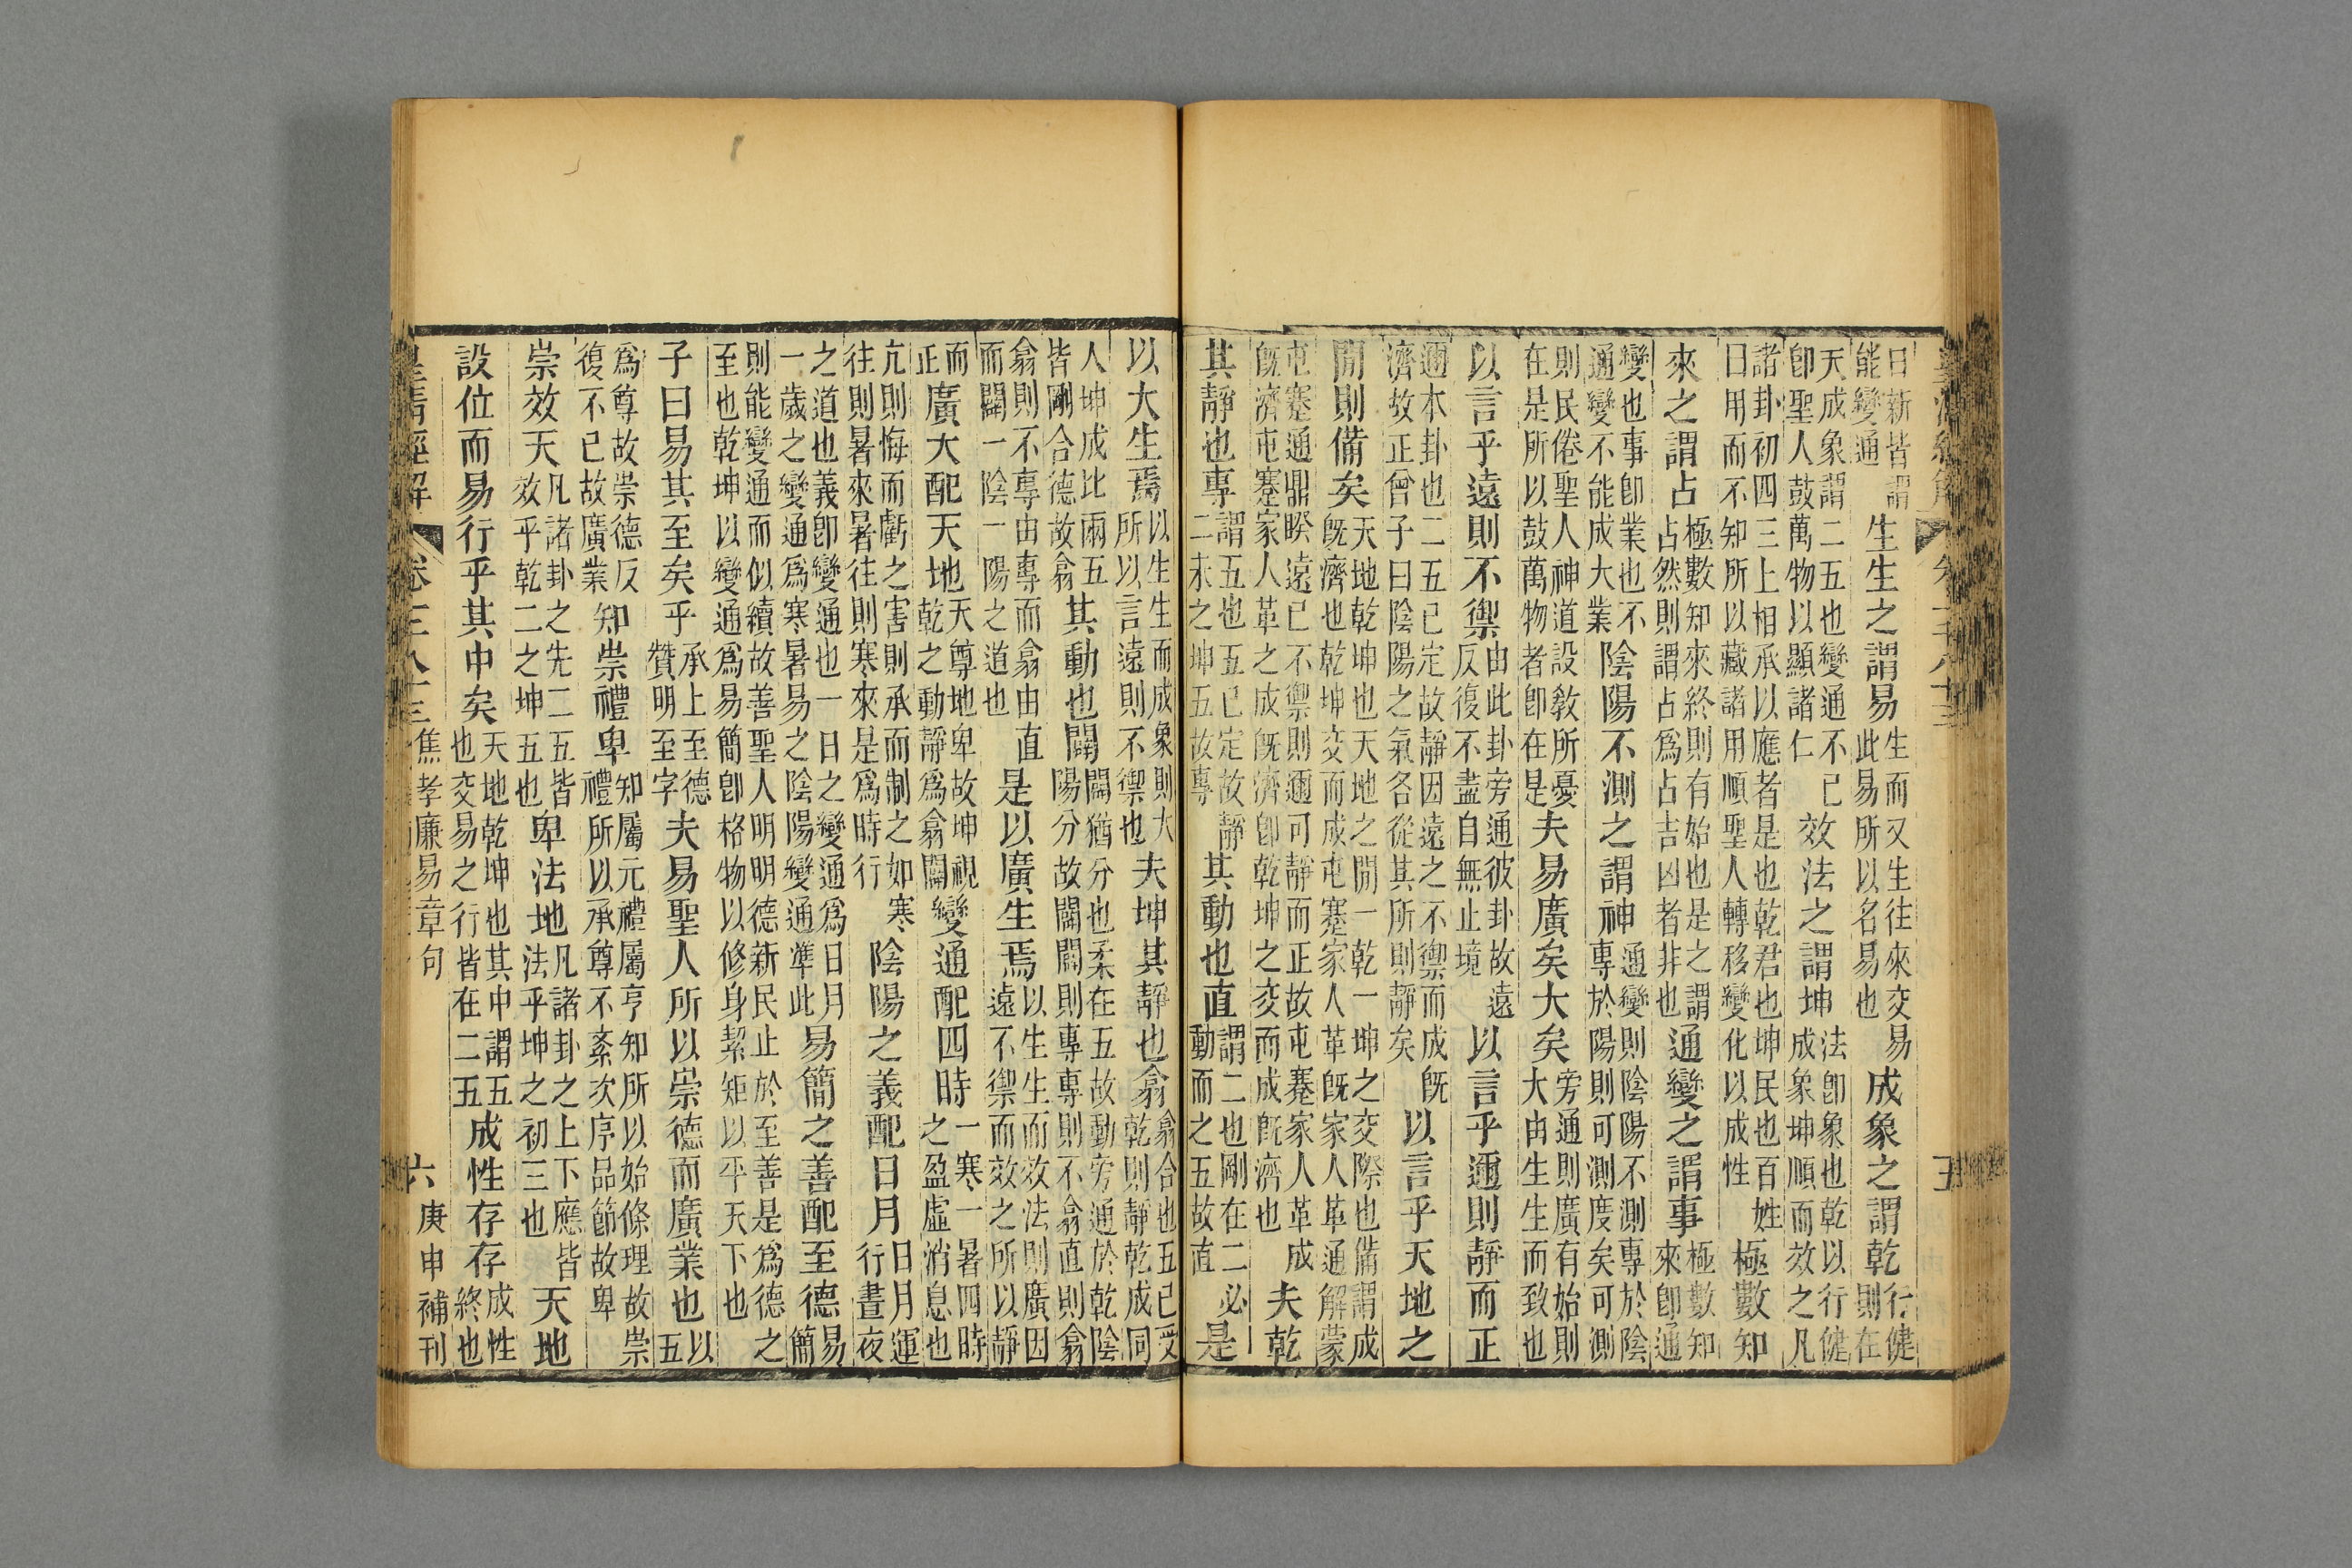 日新皆謂能變通生生之謂易生而又生往來交易此易所以名易也成象之謂乾行健則在
天成象謂二五也變通不已卽聖人鼓萬物以顯諸仁效法之謂坤法卽象也乾以行健成象坤順而效之凡
諸卦初四三上相承以應者是也乾君也坤民也百姓日用而不知所以藏諸用順聖人轉移變化以成性極數知
來之謂占極數知來終則有始也是之謂占然則謂占爲占吉凶者非也通變之謂事極數知來卽通
變也事卽業也不通變不能成大業陰陽不測之謂神通變則陰陽不測專於陰專於陽則可測度矣可測
則民倦聖人神道設敎所憂在是所以鼓萬物者卽在是夫易廣矣大矣旁通則廣有始則大由生生而致也
以言乎遠則不禦由此卦旁通彼卦故遠反復不盡自無止境以言乎邇則靜而正
邇本卦也二五已定故靜因遠之不禦而成旣濟故正曾子曰陰陽之氣各從其所則靜矣以言乎天地之
閒則備矣天地乾坤也天地之閒一乾一坤之交際也備謂成旣濟也乾坤交而成屯蹇家人革旣家人革通解蒙
屯蹇通鼎睽遠已不禦則邇可靜而正故屯蹇家人革成旣濟屯蹇家人革之成旣濟卽乾坤之交而成旣濟也夫乾
其靜也專謂五也五已定故靜二未之坤五故專其動也直謂二也剛在二必動而之五故直是
以大生焉以生生而成象則大所以言遠則不禦也夫坤其靜也翕翕合也五已受乾則靜乾成同
人坤成比兩五皆剛合德故翕其動也闢闢猶分也柔在五故動旁通於乾陰陽分故闢闢則專專則不翕直則翕
翕則不專由專而翕由直而闢一陰一陽之道也是以廣生焉以生生而效法則廣因遠不禦而效之所以靜
而正廣大配天地天尊地卑故坤視乾之動靜爲翕闢變通配四時一寒一暑四時之盈虛消息也
亢則悔而虧之害則承而制之如寒往則暑來暑往則寒來是爲時行陰陽之義配日月日月運行晝夜
之道也義卽變通也一日之變通爲日月一歲之變通爲寒暑易之陰陽變通準此易簡之善配至德易簡
則能變通而似續故善聖人明明德新民止於至善是爲德之至也乾坤以變通爲易簡卽格物以修身絜矩以平天下也
子曰易其至矣乎承上至德贊明至字夫易聖人所以崇德而廣業也以五
爲尊故崇德反復不已故廣業知崇禮卑知屬元禮屬亨知所以始條理故崇禮所以承尊不紊次序品節故卑
崇效天凡諸卦之先二五皆效乎乾二之坤五也卑法地凡諸卦之上下應皆法乎坤之初三也天地
設位而易行乎其中矣天地乾坤也其中謂五也交易之行皆在二五成性存存成性終也
皇清經解
焦孝廉易章句
六
庚申補刊